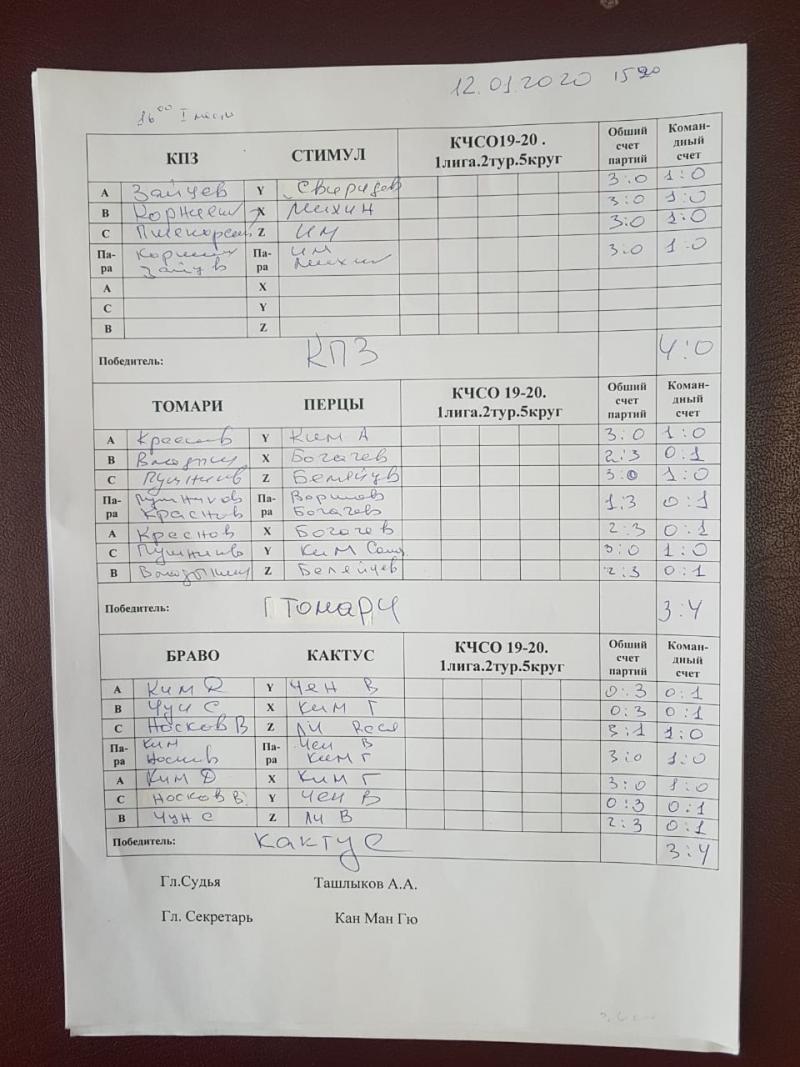 12.01.2020 15 20
16 00 I
КПЗ СТИМУЛ КЧСО19-20 . 1лига.2тур.5круг Общий счет партий Коман-дный счет
A Зайцев Y Свиридов 3:0 1:0
B X Михин 3:0 1:0
C Z Им 3:0 1:0
Па-ра Зайцев Па-ра Им Михин 3:0 1:0
A X
C Y
B Z
Победитель: КПЗ 4:0
ТОМАРИ ПЕРЦЫ КЧСО 19-20. 1лига.2тур.5круг Общий счет партий Коман-дный счет
A Краснов Y Ким А 3:0 1:0
B X Богачев 2:3 0:1
C Пушников Z Беляйцев 3:0 1:0
Па-ра Пушников Краснов Па-ра Богачев 1:3 0:1
A Краснов X Богачев 2:3 0:1
C Пушников Y Ким 3:0 1:0
B Z Беляйцев 2:3 0:1
Победитель: Томари 3:4
БРАВО КАКТУС КЧСО 19-20. 1лига.2тур.5круг Общий счет партий Коман-дный счет
A Ким Д Y Чен В 0:3 0:1
B Чун С X Ким Г 0:3 0:1
C Носков В Z Ли 3:1 1:0
Па-ра Ким Носков Па-ра Чен В Ким Г 3:0 1:0
A Ким Д X Ким Г 3:0 1:0
C Носков В. Y Чен В 0:3 0:1
B Чун С Z Ли В 2:3 0:1
Победитель: Кактус 3:4
Гл.Судья Ташлыков А.А.
Гл. Секретарь Кан Ман Гю